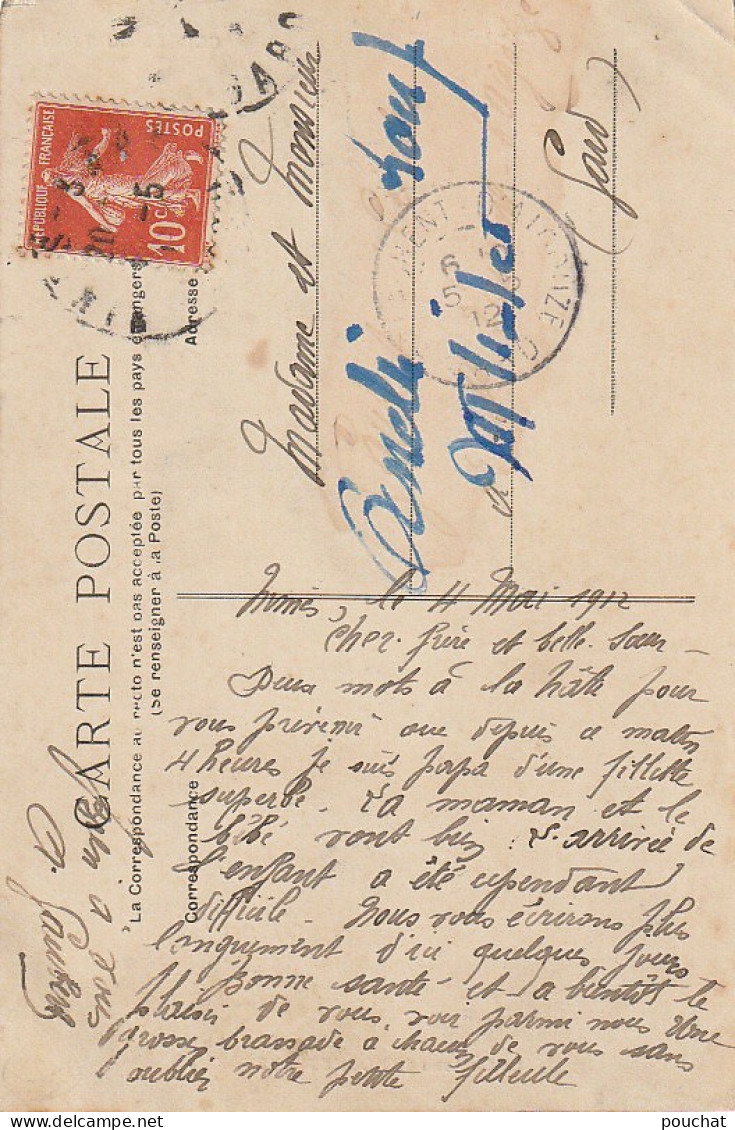 CARTE POSTALE
"La Correspondance au recto n'est pas acceptée par tous les pays étrangers
(Se renseigner à la Poste)
Correspondance
Adresse
RÉPUBLIQUE FRANÇAISE
POSTES
10c
Madame et Monsieur
à
Gard
6
5
12
Nîmes, le 4 Mai 1912
Cher frère et belle-sœur -
Deux mots à la hâte pour
vous prévenir que depuis ce matin
4 heures je suis papa d'une fillette
superbe. La maman et le
bébé vont bien. L'arrivée de
l'enfant a été cependant
difficile. Nous vous écrirons plus
longuement d'ici quelques jours
Bonne santé et à bientôt le
plaisir de vous voir parmi nous. Une
grosse brassade à chacun de vous sans
oublier notre petite filleule
à vous
pouchat